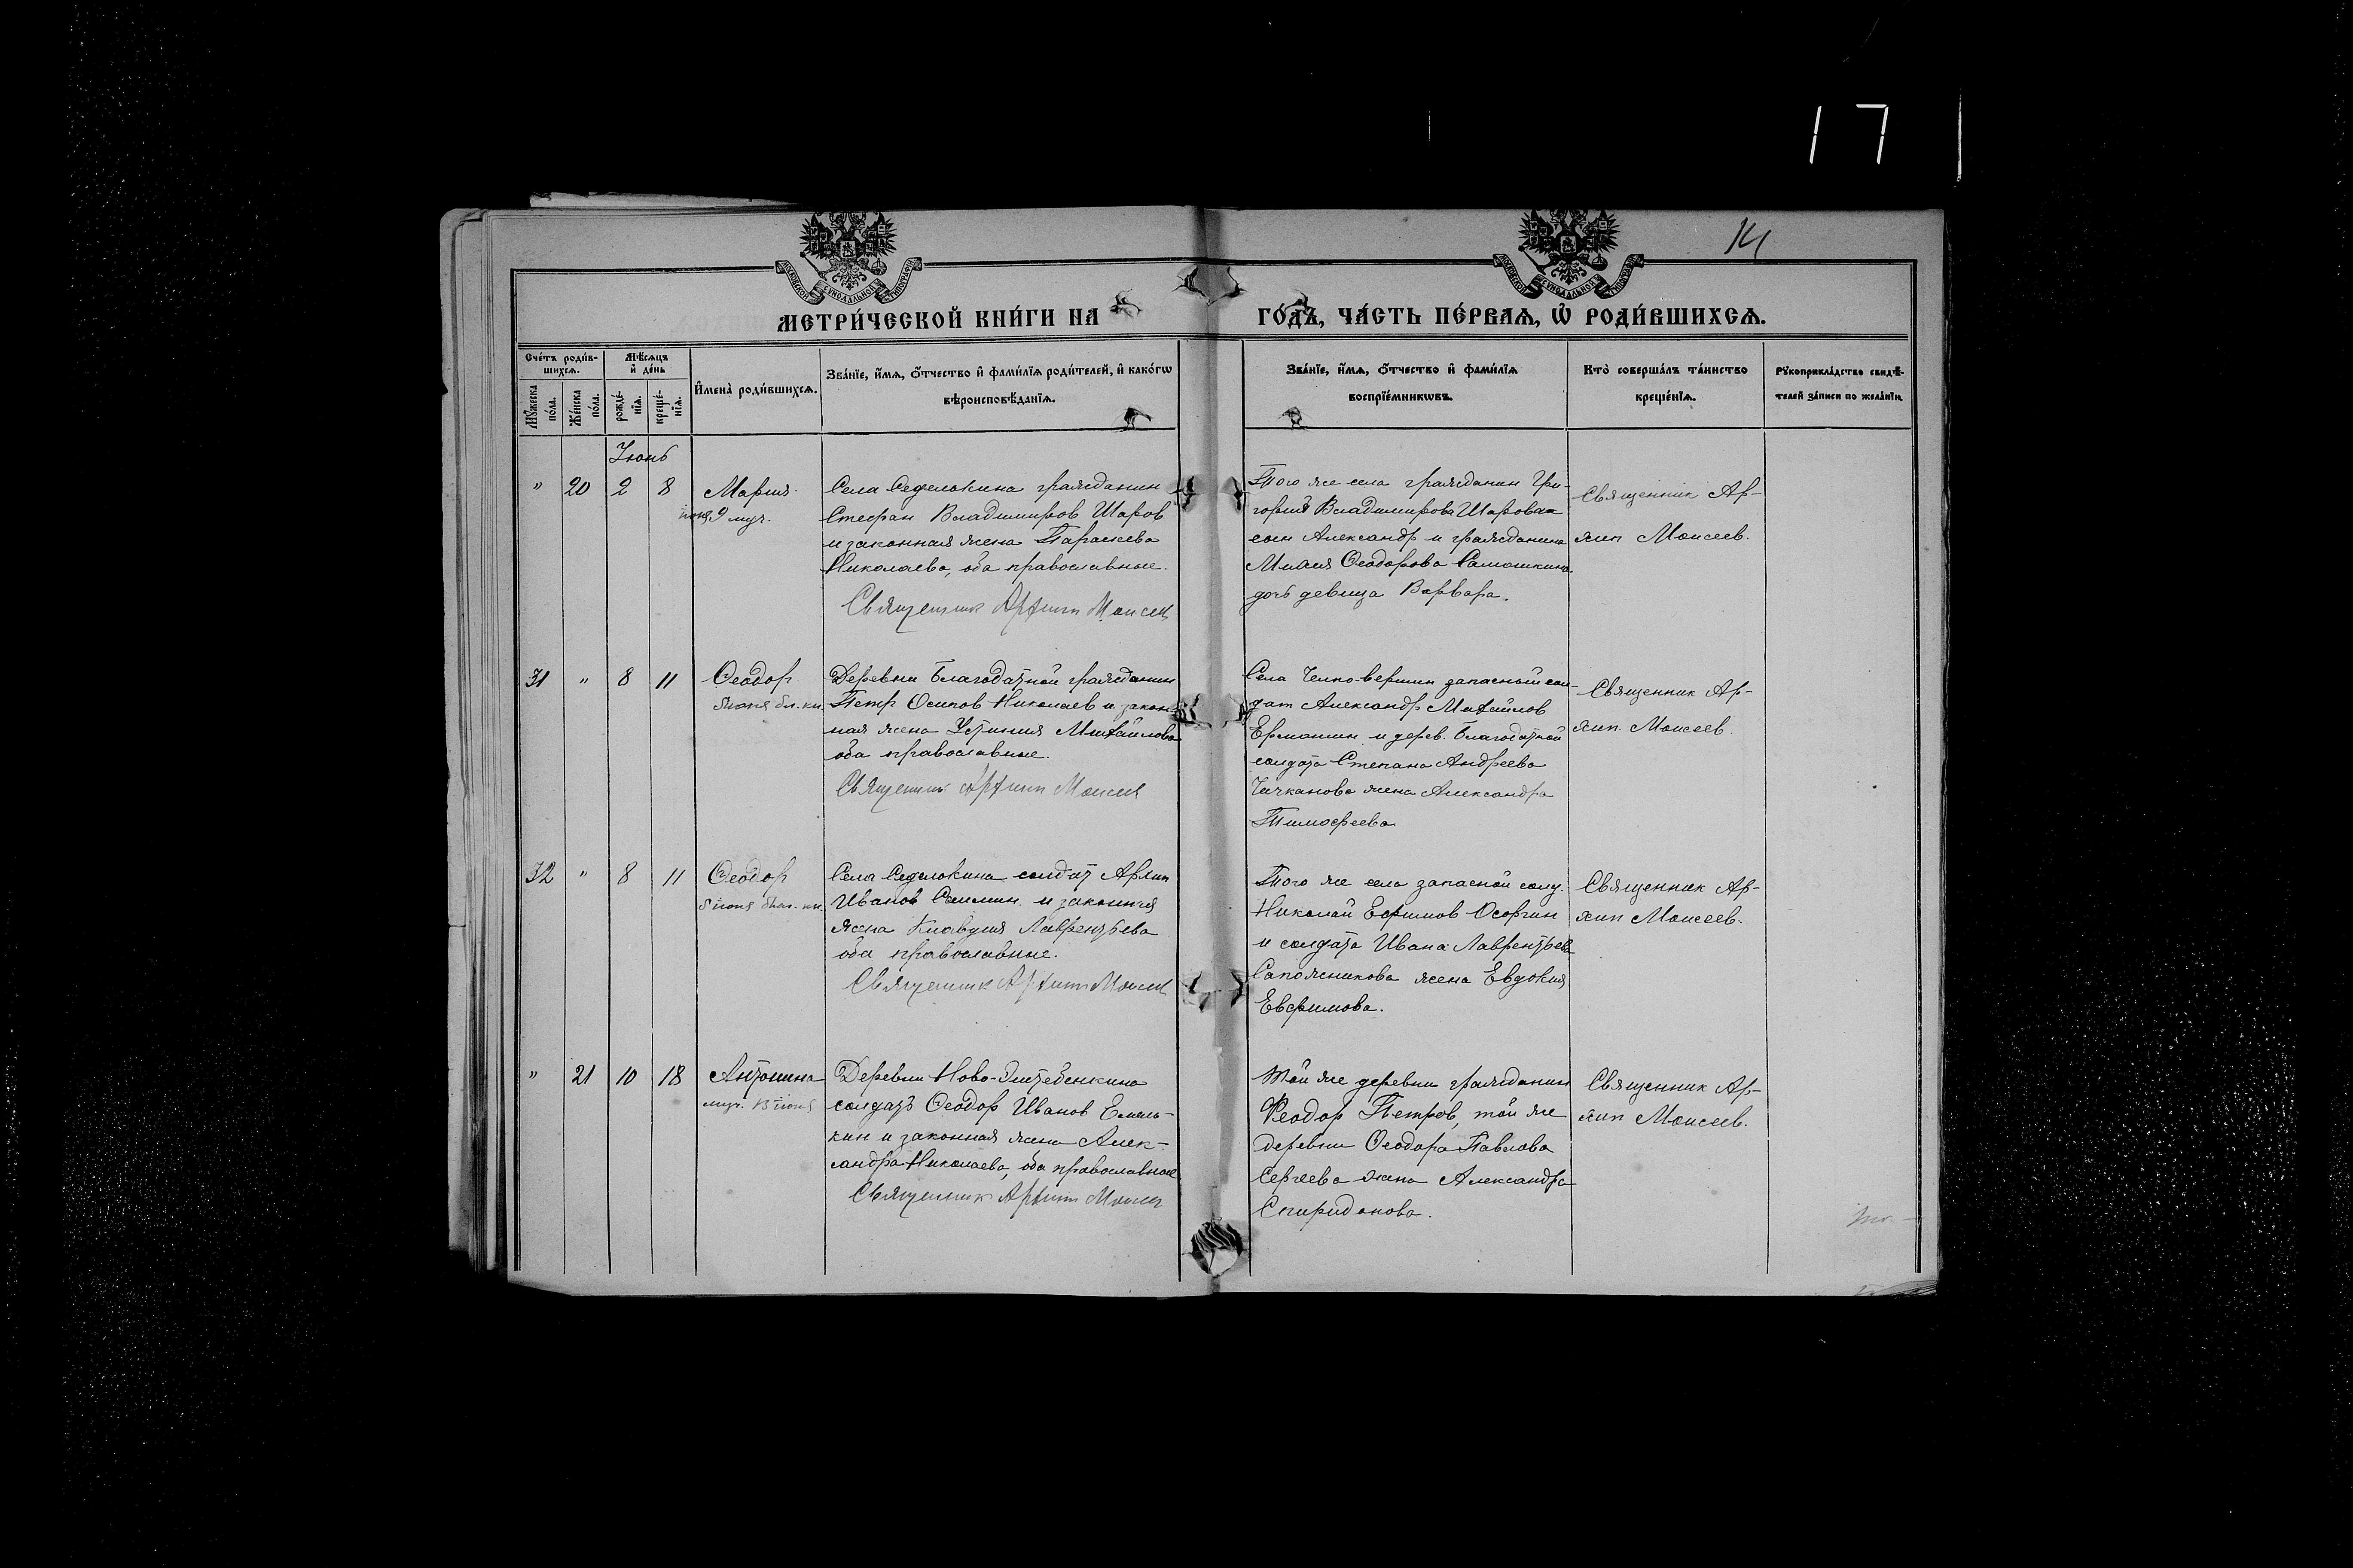 17
14
МОСКОВСКОЙ СѴНОДАЛЬНОЙ ТИПОГРАФІИ
МОСКОВСКОЙ СѴНОДАЛЬНОЙ ТИПОГРАФІИ
МЕТРИ́ЧЕСКОЙ КНИ́ГИ НА
ГО́ДЪ, ЧА́СТЬ ПЕ́РВАѦ, Ѡ҆ РОДИ́ВШИХСѦ.
Сче́тъ роди́в-
шихсѧ.
Мꙋ́жеска по́ла.
Же́нска по́ла.
Мѣ́сѧцъ
и҆ де́нь
рожде́-
нїѧ.
креще́-
нїѧ.
И҆мена̀ роди́вшихсѧ.
Зва́нїе, и҆́мѧ, ѻ҆́тчество и҆ фами́лїѧ роди́телей, и҆ како́гѡ
вѣроисповѣ́данїѧ.
Зва́нїе, и҆́мѧ, ѻ҆́тчество и҆ фами́лїѧ
воспрїе́мникѡвъ.
Кто̀ соверша́лъ та́инство
креще́нїѧ.
Рꙋкоприкла́дство свидѣ́-
телей за́писи по жела́нїю.
Июнь
" 20 2 8
Мария
июня 9 муч.
Села Седелькина гражданин
Стефан Владимиров Шаров
и законная жена Параскева
Николаева, оба православные.
Священник Архипп Моисеев
Того же села гражданин Гри-
горий Владимирова Шарова
сын Александр и гражданина
Феодорова
дочь девица Варвара.
Священник Ар-
хип Моисеев.
31 " 8 11
Ѳеодор
бл. кн.
Деревни Благодатной гражданин
Петр Осипов Николаев и закон-
ная жена Устиния Михайлова
оба православные.
Священник Архипп Моисеев
Села Челно-вершин запасный сол-
дат Александр Михайлов
и дерев. Благодатной
солдата Степана Андреева
Чичканова жена Александра
Тимофеева
Священник Ар-
хип Моисеев.
32 " 8 11
Ѳеодор
июня благ. кн.
Села Седелькина солдат Архип
Иванов и законная
жена Клавдия Лаврентьева
оба православные.
Священник Архипп Моисеев
Того же села запасной солд.
Николай Ефимов Осоргин
и солдата Ивана Лаврентьева
Сапожникова жена Евдокия
Евфимова.
Священник Ар-
хип Моисеев.
" 21 10 18
Антонина
муч. 13 июня
Деревни
солдат Ѳеодор Иванов Емель-
кин и законная жена Алек-
сандра Николаева, оба православные
Священник Архипп Моисеев
Той же деревни гражданин
Феодор Петров, той же
деревни Ѳеодора Павлова
Сергеева жена Александра
Спиридонова.
Священник Ар-
хип Моисеев.